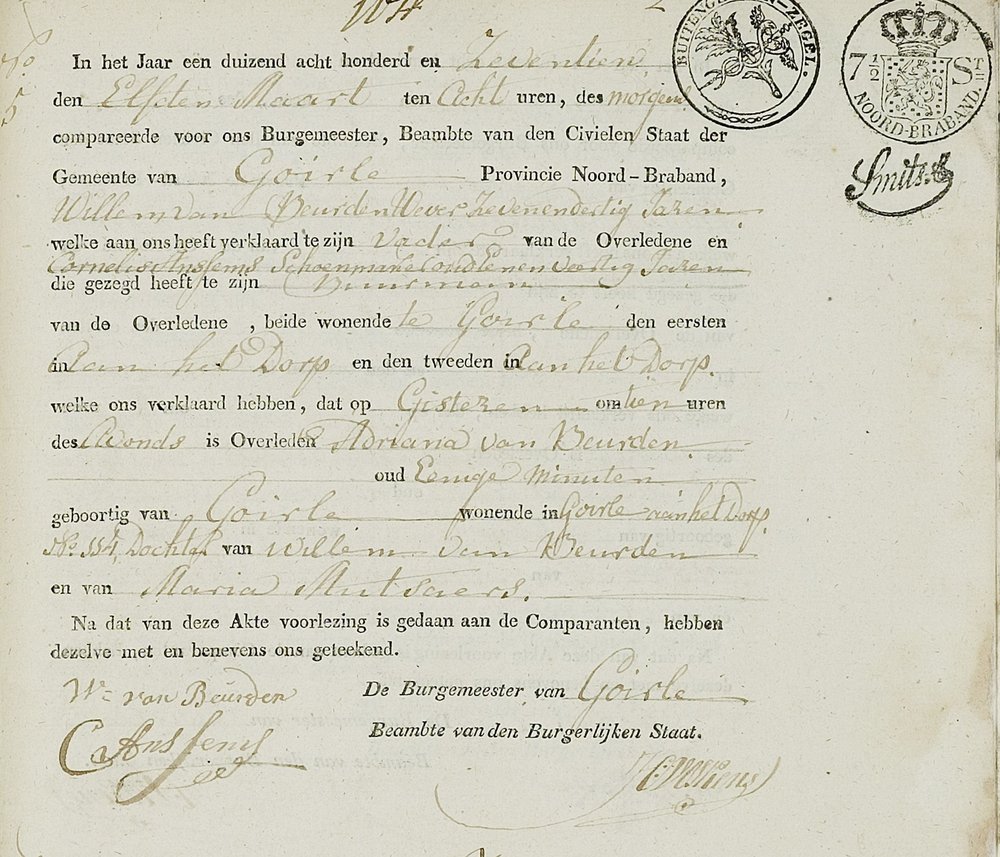 BUITENGEWOON-ZEGEL.
7 1/2 STr
NOORD-BRABAND.
Smits.
No
5
In het Jaar een duizend acht honderd en Zeventien
den Elfden Maart ten Acht uren, des morgens
compareerde voor ons Burgemeester, Beambte van den Civielen Staat der
Gemeente van Goirle Provincie Noord-Braband,
Willem van Beurden Wever Zevenendertig Jaren
welke aan ons heeft verklaard te zijn vader van de Overledene en
Cornelis Ansems Schoenmaker oud Eenen veertig Jaren
die gezegd heeft te zijn Buurman
van de Overledene, beide wonende te Goirle den eersten
in Aan het Dorp en den tweeden in Aan het Dorp.
welke ons verklaard hebben, dat op Gisteren om tien uren
des Avonds is Overleden Adriana van Beurden
oud Eenige minuten
geboortig van Goirle wonende in Goirle aan het Dorp
No. 114, Dochter van Willem van Beurden
en van Maria Mutsaers.
Na dat van deze Akte voorlezing is gedaan aan de Comparanten, hebben
dezelve met en benevens ons geteekend.
Wm van Beurden
De Burgemeester van Goirle
C Anssems
Beambte van den Burgerlijken Staat.